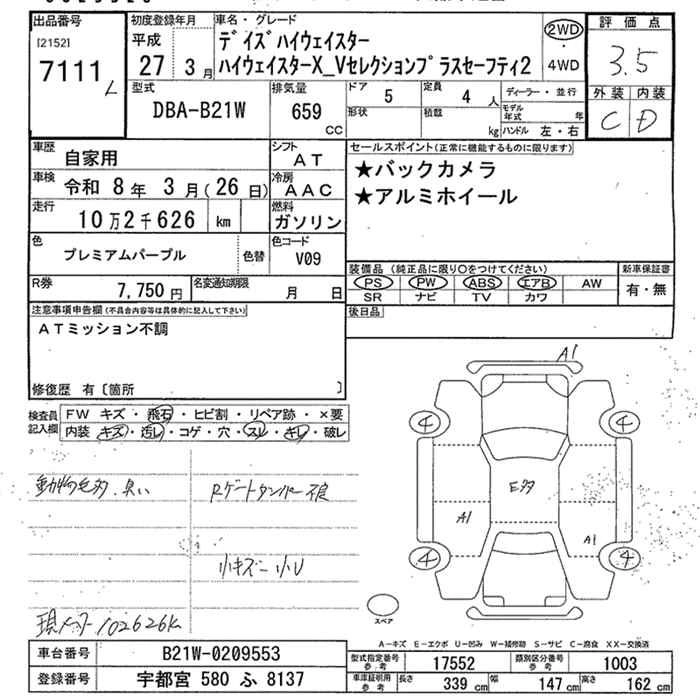 出品番号
[2152]
7111
L
初度登録年月
平成
27 3月
車名・グレード
デイズハイウェイスター
ハイウェイスターX_Vセレクションプラスセーフティ2
2WD
・
4WD
評価点
3.5
外装 内装
C D
型式
DBA-B21W
排気量
659
CC
ドア
5
定員
4 人
形状
積載
kg
ディーラー・並行
モデル年式 年
ハンドル 左・右
車歴
自家用
シフト
AT
車検
令和 8年 3月(26日)
冷房
AAC
走行
10万2千626 km
燃料
ガソリン
色
プレミアムパープル
色替
色コード
V09
セールスポイント(正常に機能するものに限ります)
★バックカメラ
★アルミホイール
R券
7,750円
名変通知期限
月 日
装備品 (純正品に限り○をつけてください)
PS PW ABS エアB AW
SR ナビ TV カワ
新車保証書
有・無
注意事項申告欄(不具合内容等は具体的に記入して下さい)
ATミッション不調
修復歴 有〔箇所 〕
後日品
検査員
記入欄
FW キズ・飛石・ヒビ割・リペア跡・×要
内装 キズ・汚レ・コゲ・穴・スレ・キレ・破レ
動物毛多、臭い
Rゲートダンパー不良
小キズ 小U
現メーター102626K
A1
4
4
Eタタ
A1
A1
4
4
スペア
A−キズ E−エクボ U−凹み W−補修跡 S−サビ C−腐食 XX−交換済
車台番号
B21W-0209553
登録番号
宇都宮 580 ふ 8137
型式指定番号
参考
17552
類別区分番号
参考
1003
車庫証明用
参考
長さ
339 cm
幅
147 cm
高さ
162 cm